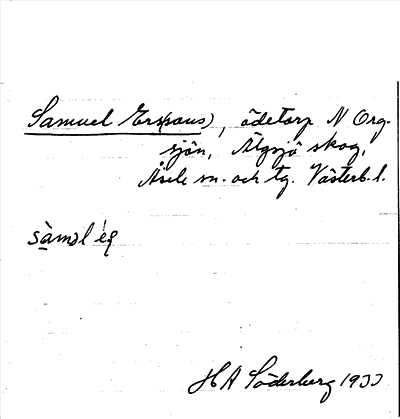 Samuel Ers(paus), ödetorp N Org-
sjön, Älgsjö skog,
Åsele sn. och tg. Västerb. l.
sàməl
H A Söderberg 1933